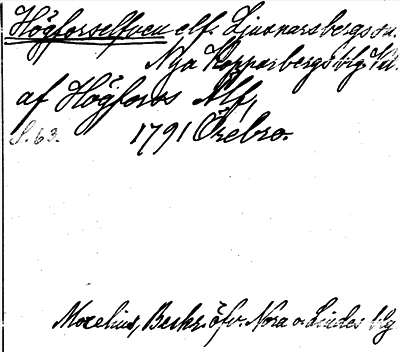 Högforselfven elf. Ljusnarsbergs sn.
Nya Kopparbergs blg Vtl.
af Högfors Alf,
S. 63. 1791 Örebro.
Moxelius, Beskr. öfv. Nora o. Lindes blg